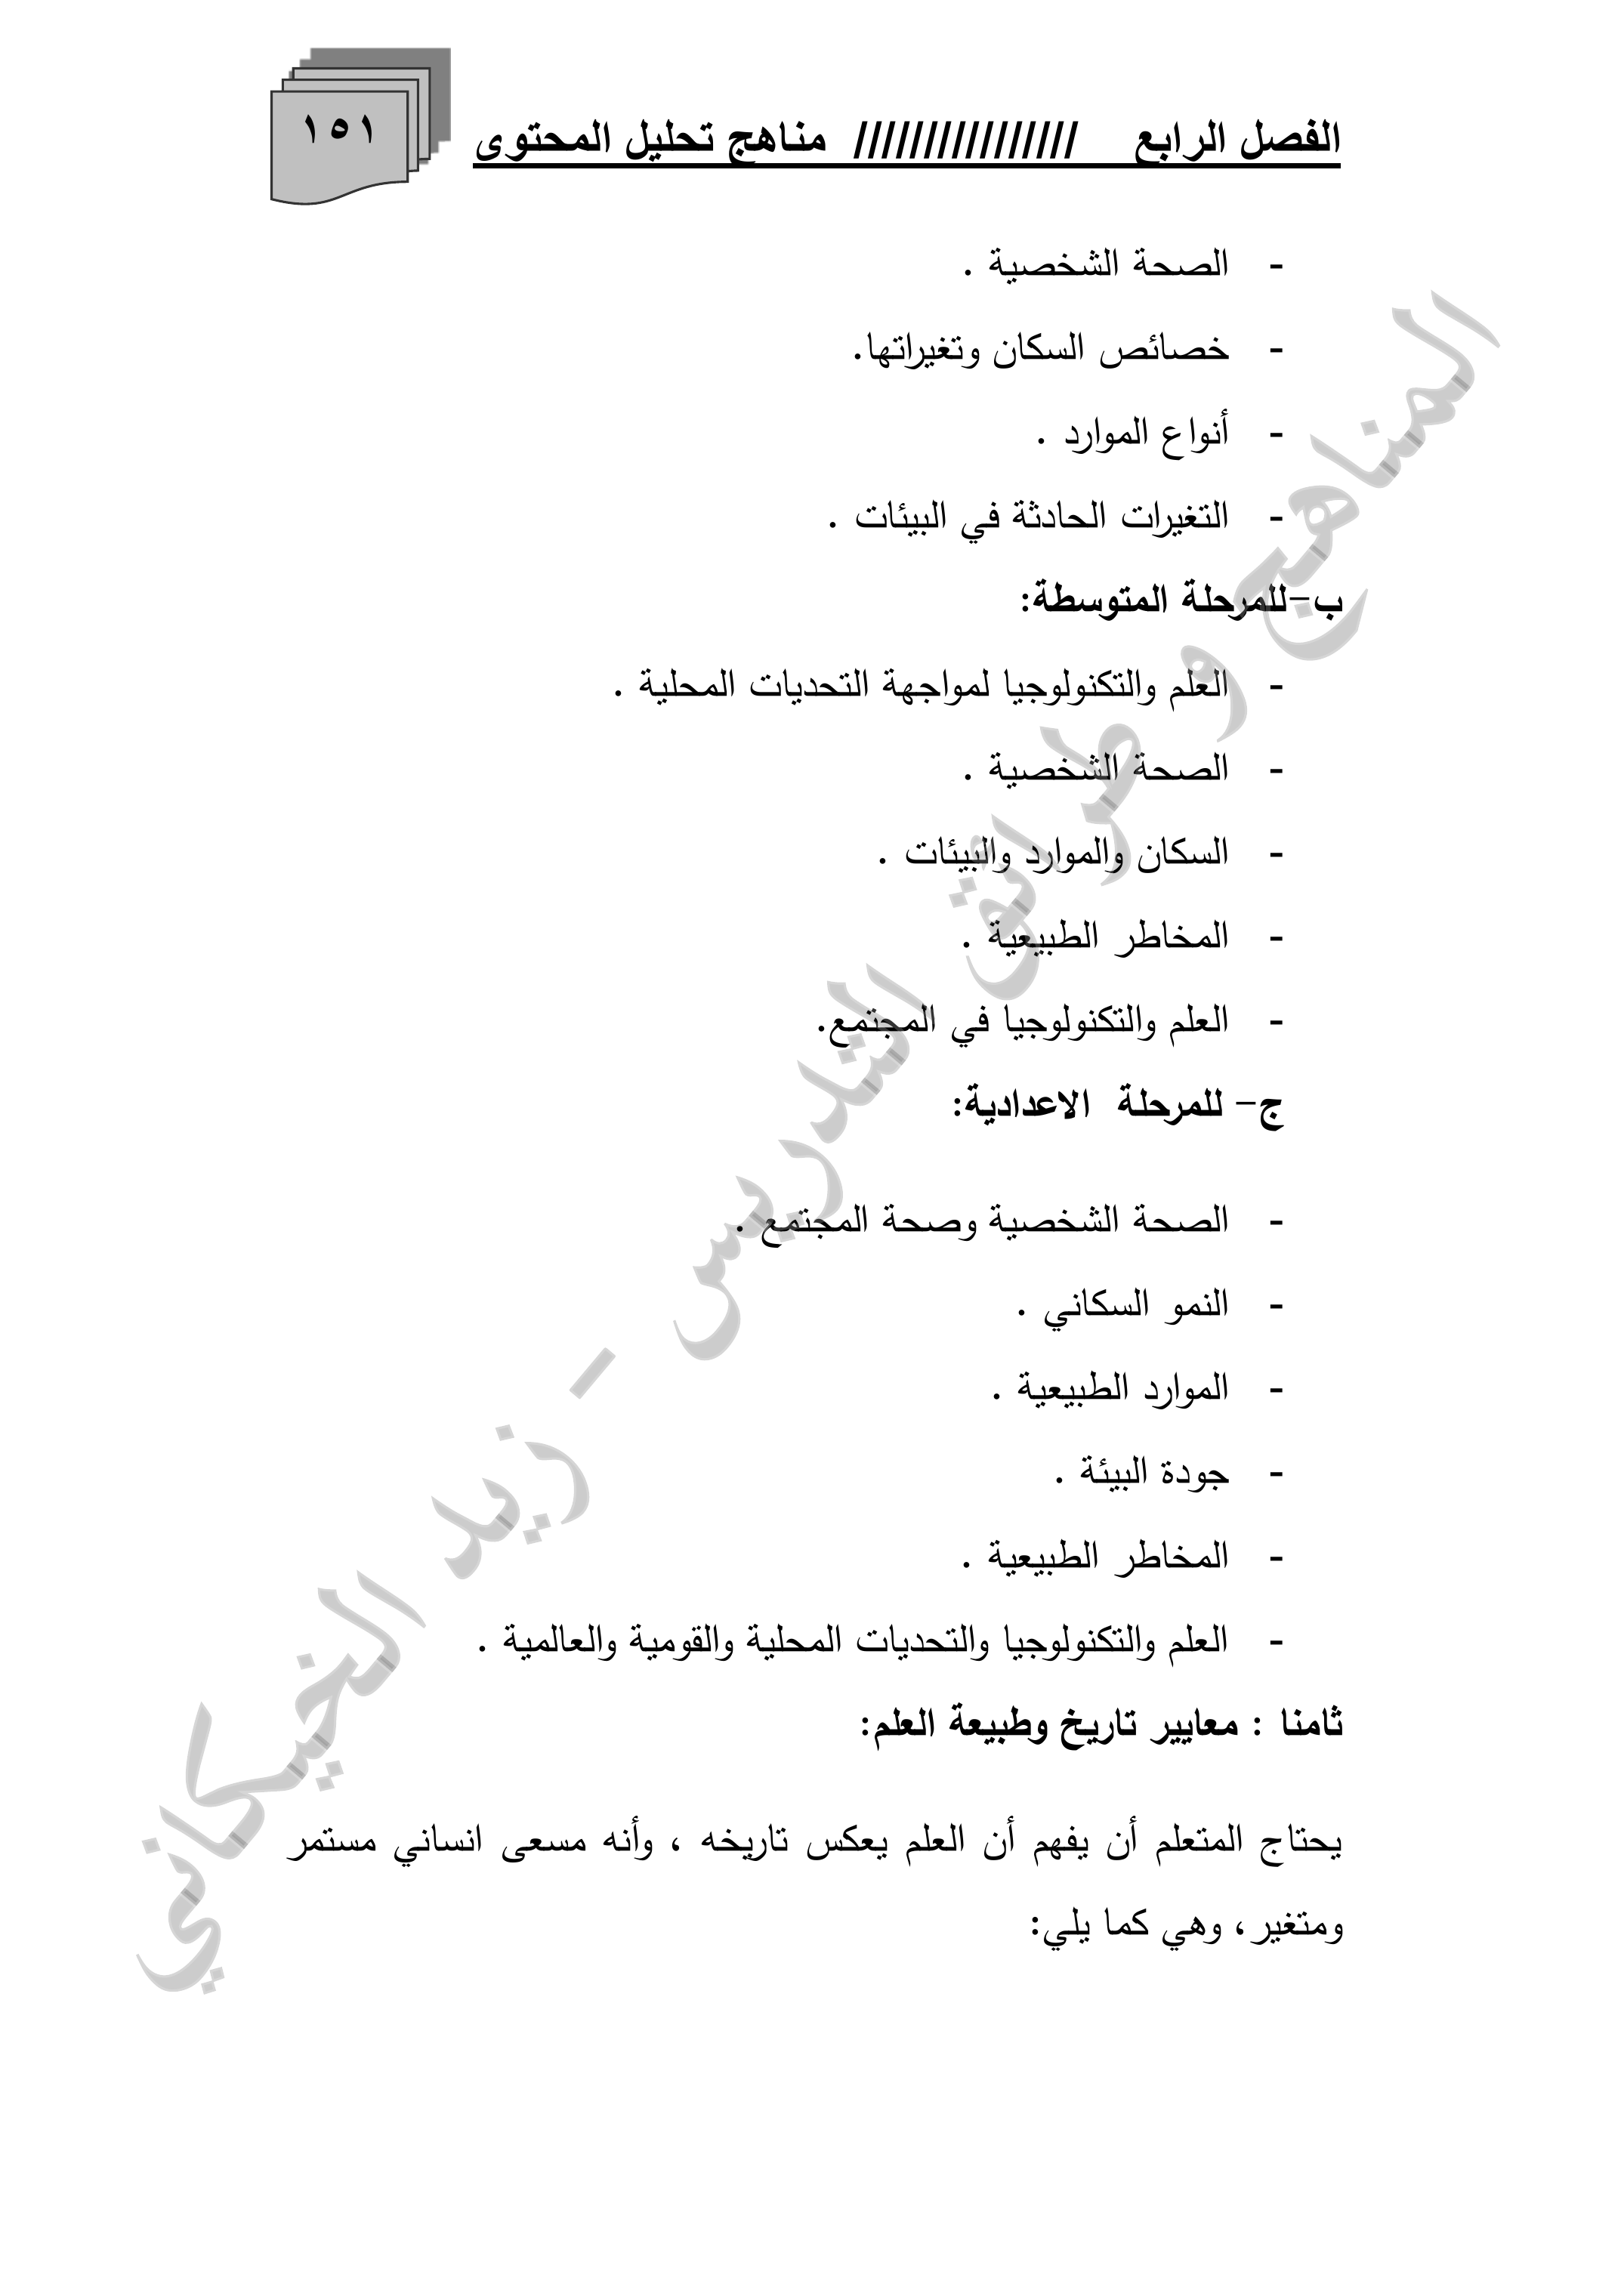 الفصل الرابع //////////////// مناهج تحليل المحتوى
١٥١
- الصحة الشخصية .
- خصائص السكان وتغيراتها.
- أنواع الموارد .
- التغيرات الحادثة في البيئات .
ب-للمرحلة المتوسطة:
- العلم والتكنولوجيا لمواجهة التحديات المحلية .
- الصحة الشخصية .
- السكان والموارد والبيئات .
- المخاطر الطبيعية .
- العلم والتكنولوجيا في المجتمع.
ج- للمرحلة الاعدادية:
- الصحة الشخصية وصحة المجتمع .
- النمو السكاني .
- الموارد الطبيعية .
- جودة البيئة .
- المخاطر الطبيعية .
- العلم والتكنولوجيا والتحديات المحلية والقومية والعالمية .
ثامنا : معايير تاريخ وطبيعة العلم:
يحتاج المتعلم أن يفهم أن العلم يعكس تاريخه ، وأنه مسعى انساني مستمر
ومتغير، وهي كما يلي:
المناهج و طرائق التدريس - زيد الخيكاني